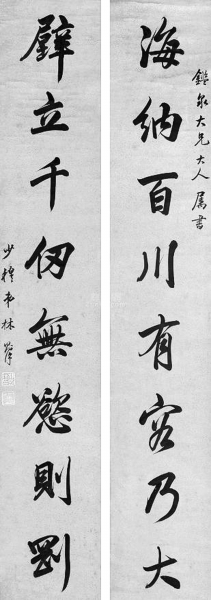 鑑泉大兄大人屬書
海納百川有容乃大
壁立千仞無慾則剛
少穆弟林